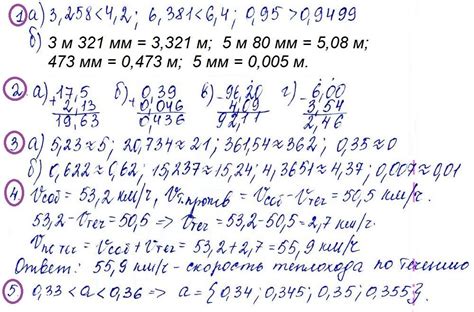 1 а) 3,258<4,2; 6,381<6,4; 0,95>0,9499
б) 3 м 321 мм = 3,321 м; 5 м 80 мм = 5,08 м;
473 мм = 0,473 м; 5 мм = 0,005 м.
2 а) 17,5 б) 0,39 в) 96,20 г) 6,00
+ 2,13 + 0,046 - 4,09 - 3,54
19,63 0,436 92,11 2,46
3 а) 5,23≈5; 20,734≈21; 361,54≈362; 0,35≈0
б) 0,622≈0,62; 15,237≈15,24; 4,3651≈4,37; 0,007≈0,01
4 Vсоб = 53,2 км/ч, Vпротив = Vсоб - Vтеч = 50,5 км/ч.
53,2 - Vтеч = 50,5 => Vтеч = 53,2 - 50,5 = 2,7 км/ч.
Vпо теч = Vсоб + Vтеч = 53,2 + 2,7 = 55,9 км/ч
Ответ: 55,9 км/ч - скорость теплохода по течению
5 0,33 < а < 0,36 => а = {0,34; 0,345; 0,35; 0,355}.